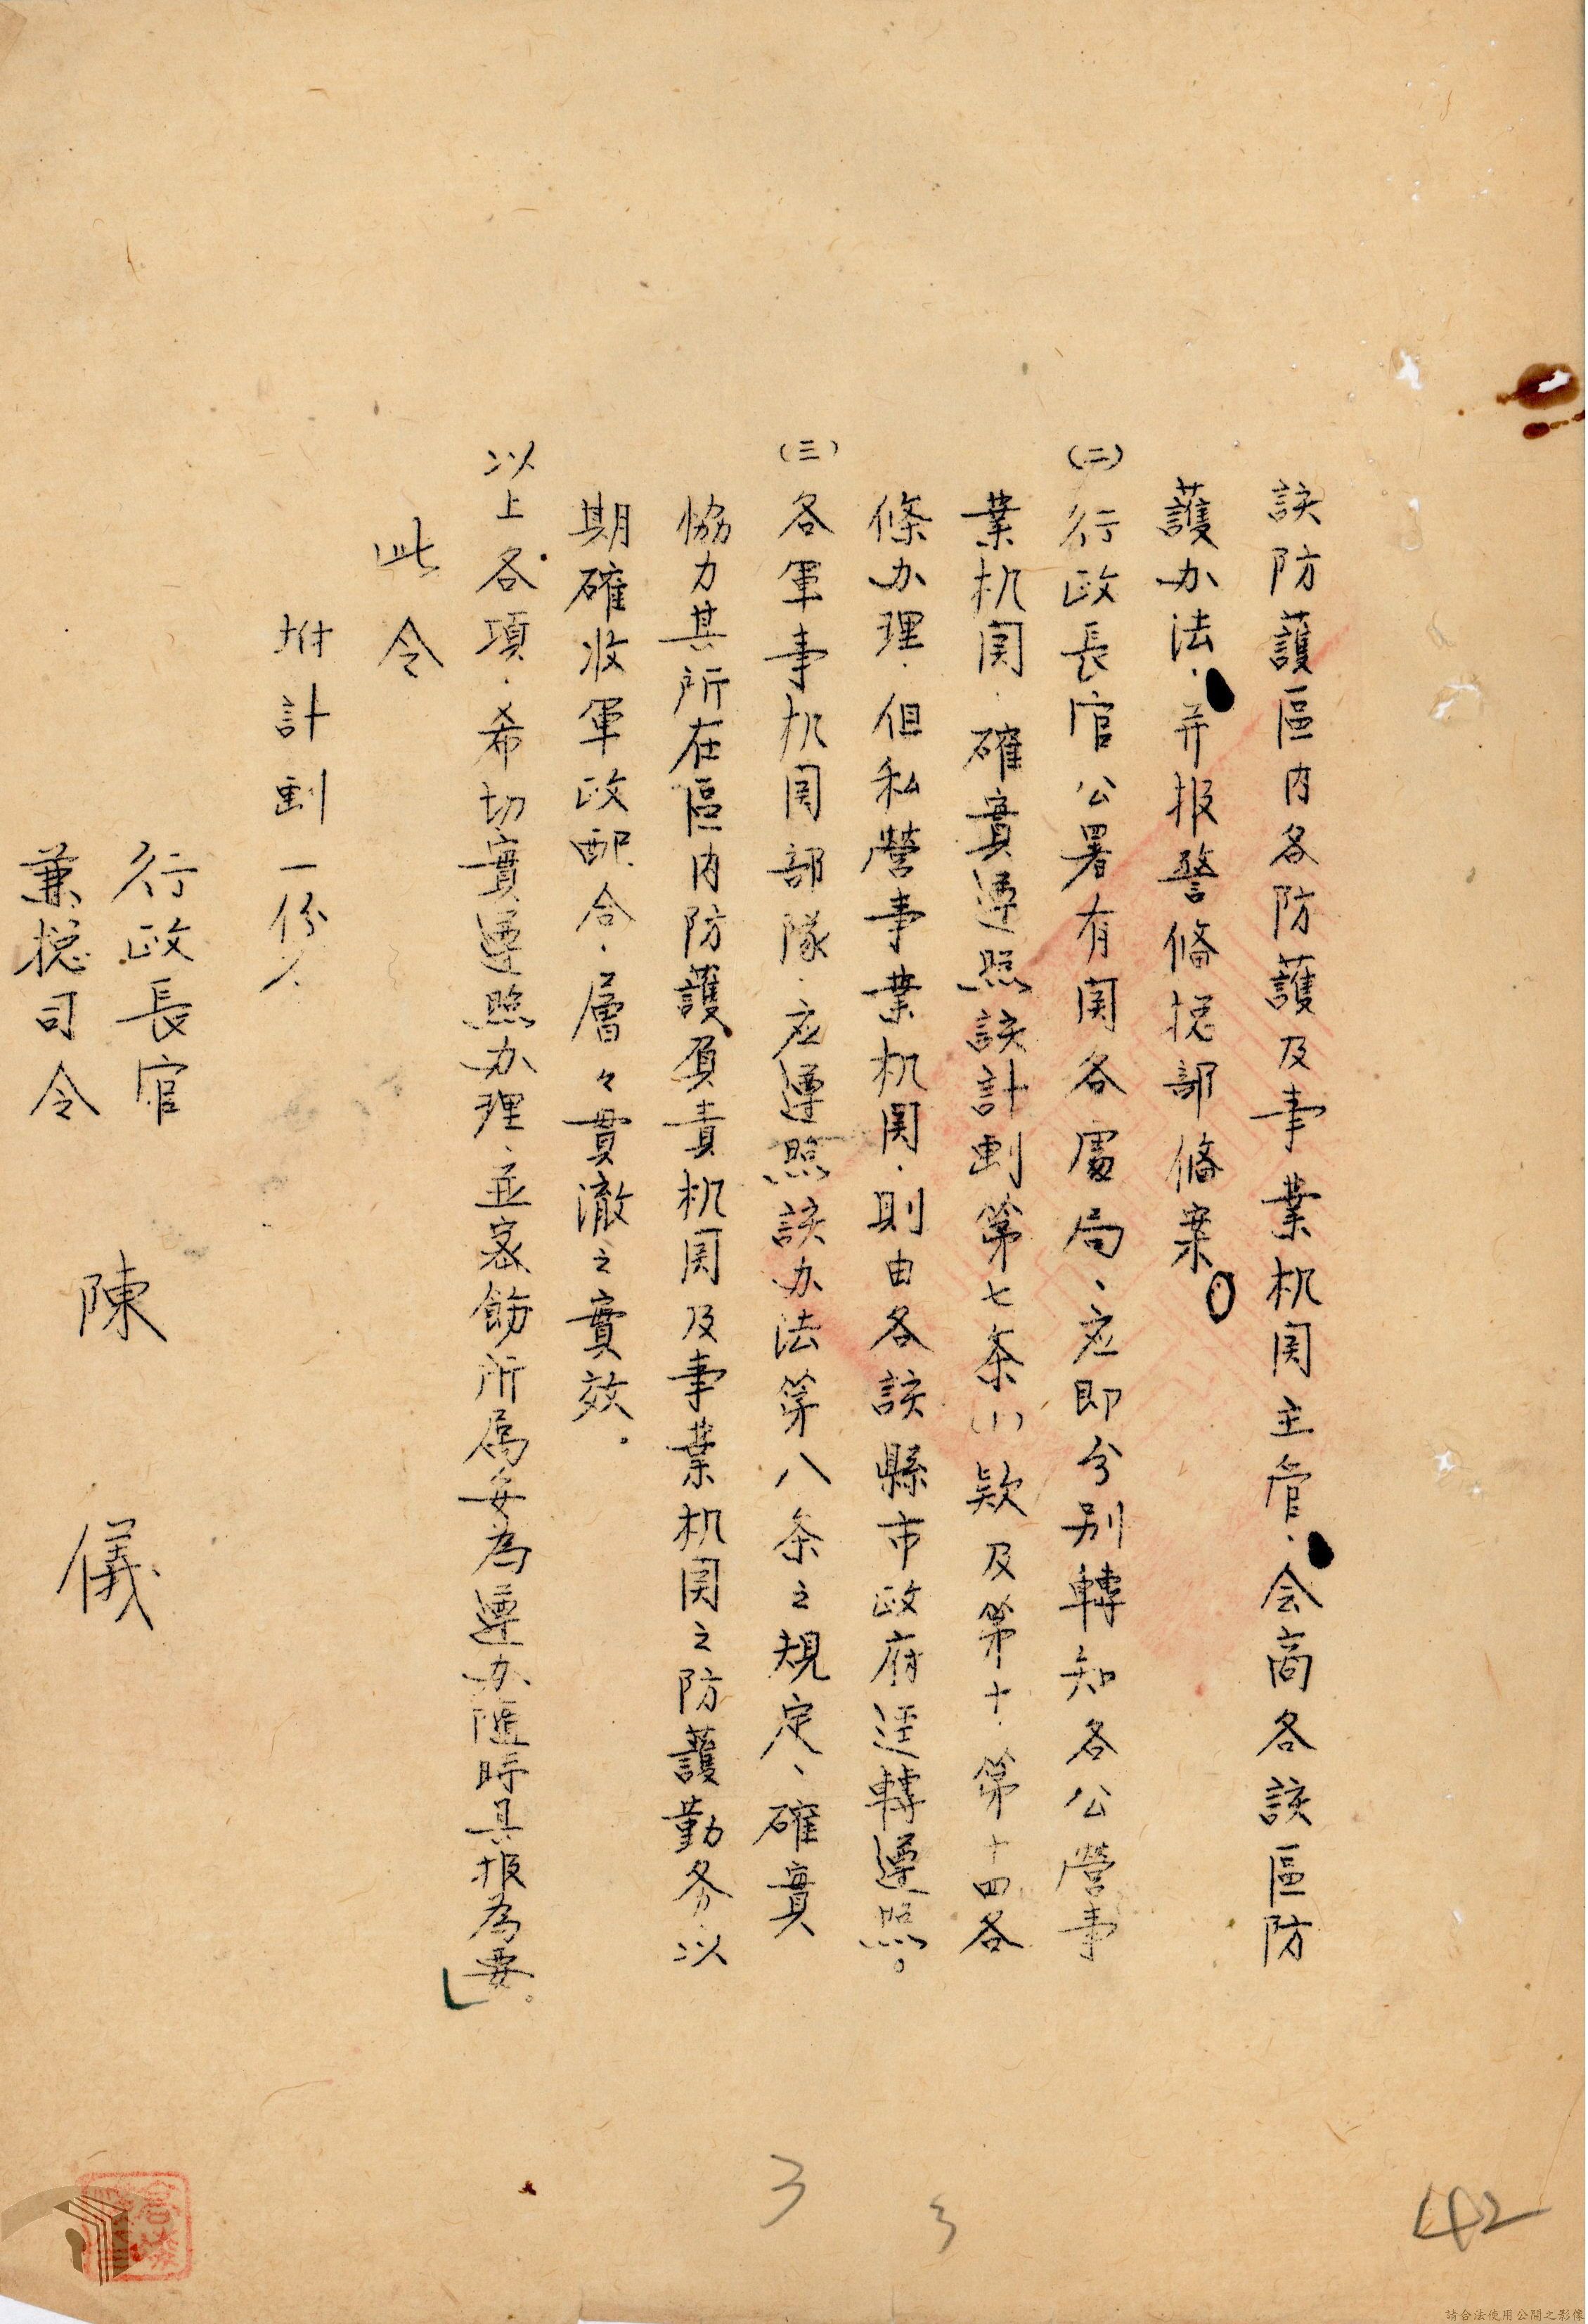 該防護區内各防護及事業机関主管、会商各該區防
護办法、并报警俻揔部俻案。
(二)行政長官公署有関各處局、应即分别轉知各公營事
業机関、確實遵照該計劃第七条(1)欵及第十、第十四各
條办理、但私營事業机関、則由各該縣市政府逕轉遵照。
(三)各軍事机関部隊、应遵照該办法第八条之規定、確實
協力其所在區内防護負責机関及事業机関之防護勤务、以
期確收軍政配合、層々貫澈之實效。
以上各項、希切實遵照办理、並密飭所属妥為遵办隨時具报為要。」
此令
坿計劃一份
行政長官
兼揔司令
陳儀
3
3
42
請合法使用公開之影像